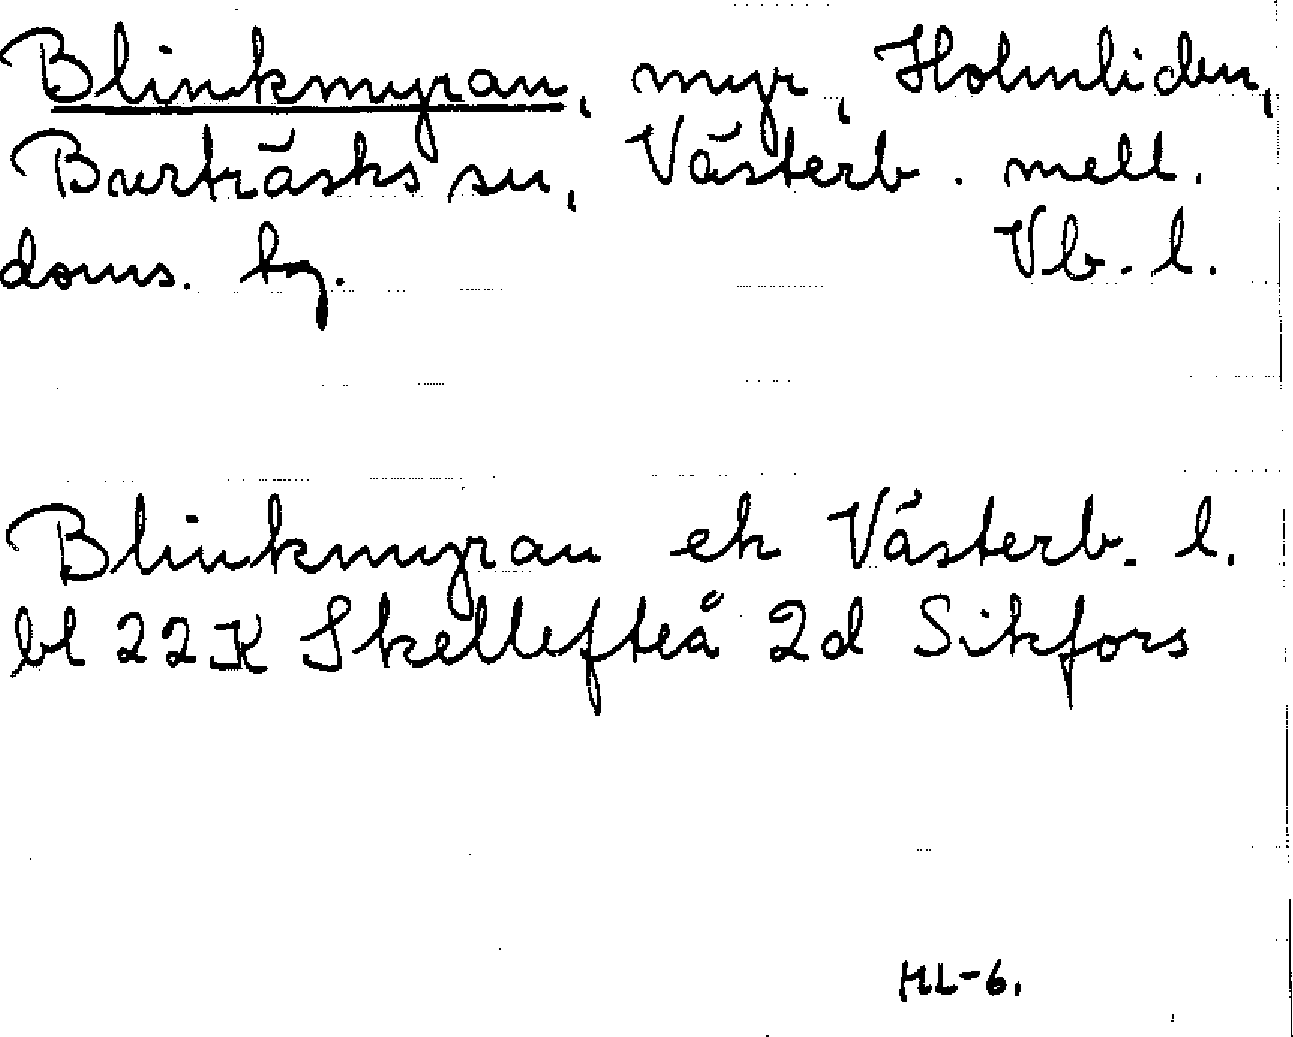 Blinkmyran, myr, Holmliden,
Burträsks sn, Västerb. mell.
doms. tg. Vb. l.
Blinkmyran ek Västerb. l.
bl 22K Skellefteå 2d Sikfors
HL-6.